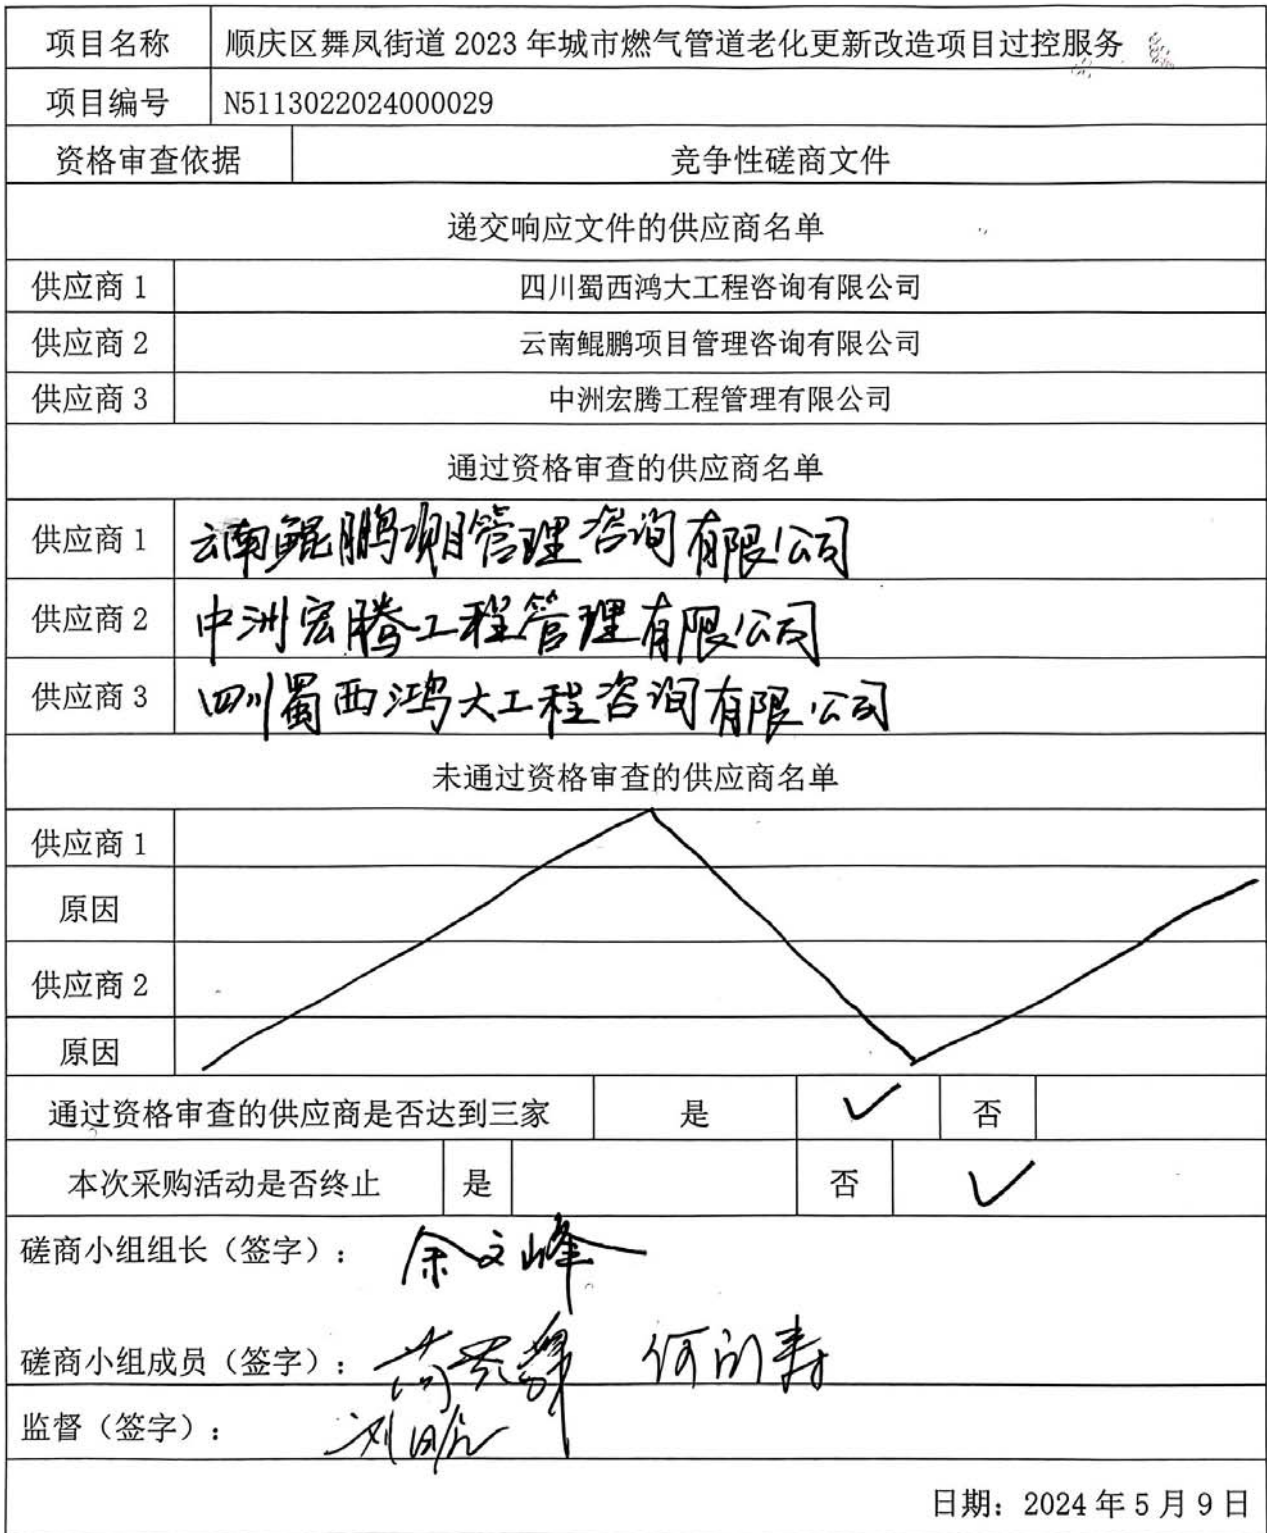 项目名称 顺庆区舞凤街道 2023 年城市燃气管道老化更新改造项目过控服务
项目编号 N5113022024000029
资格审查依据 竞争性磋商文件
递交响应文件的供应商名单
供应商 1 四川蜀西鸿大工程咨询有限公司
供应商 2 云南鲲鹏项目管理咨询有限公司
供应商 3 中洲宏腾工程管理有限公司
通过资格审查的供应商名单
供应商 1 云南鲲鹏项目管理咨询有限公司
供应商 2 中洲宏腾工程管理有限公司
供应商 3 四川蜀西鸿大工程咨询有限公司
未通过资格审查的供应商名单
供应商 1
原因
供应商 2
原因
通过资格审查的供应商是否达到三家 是 ✓ 否
本次采购活动是否终止 是 否 ✓
磋商小组组长（签字）： 余文峰
磋商小组成员（签字）：
监督（签字）：
日期：2024 年 5 月 9 日